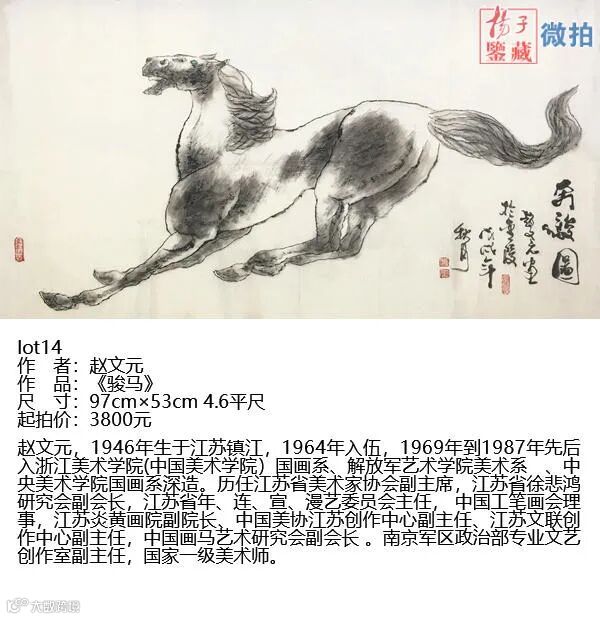 揚子
鑒藏
微拍
奔駿圖
文元画
於金陵
戊戌年
秋月
lot14
作　者：赵文元
作　品：《骏马》
尺　寸：97cm×53cm 4.6平尺
起拍价：3800元
赵文元，1946年生于江苏镇江，1964年入伍，1969年到1987年先后
入浙江美术学院(中国美术学院）国画系、解放军艺术学院美术系 、中
央美术学院国画系深造。历任江苏省美术家协会副主席，江苏省徐悲鸿
研究会副会长，江苏省年、连、宣、漫艺委员会主任，中国工笔画会理
事，江苏炎黄画院副院长、中国美协江苏创作中心副主任、江苏文联创
作中心副主任，中国画马艺术研究会副会长 。南京军区政治部专业文艺
创作室副主任，国家一级美术师。
大数跨境